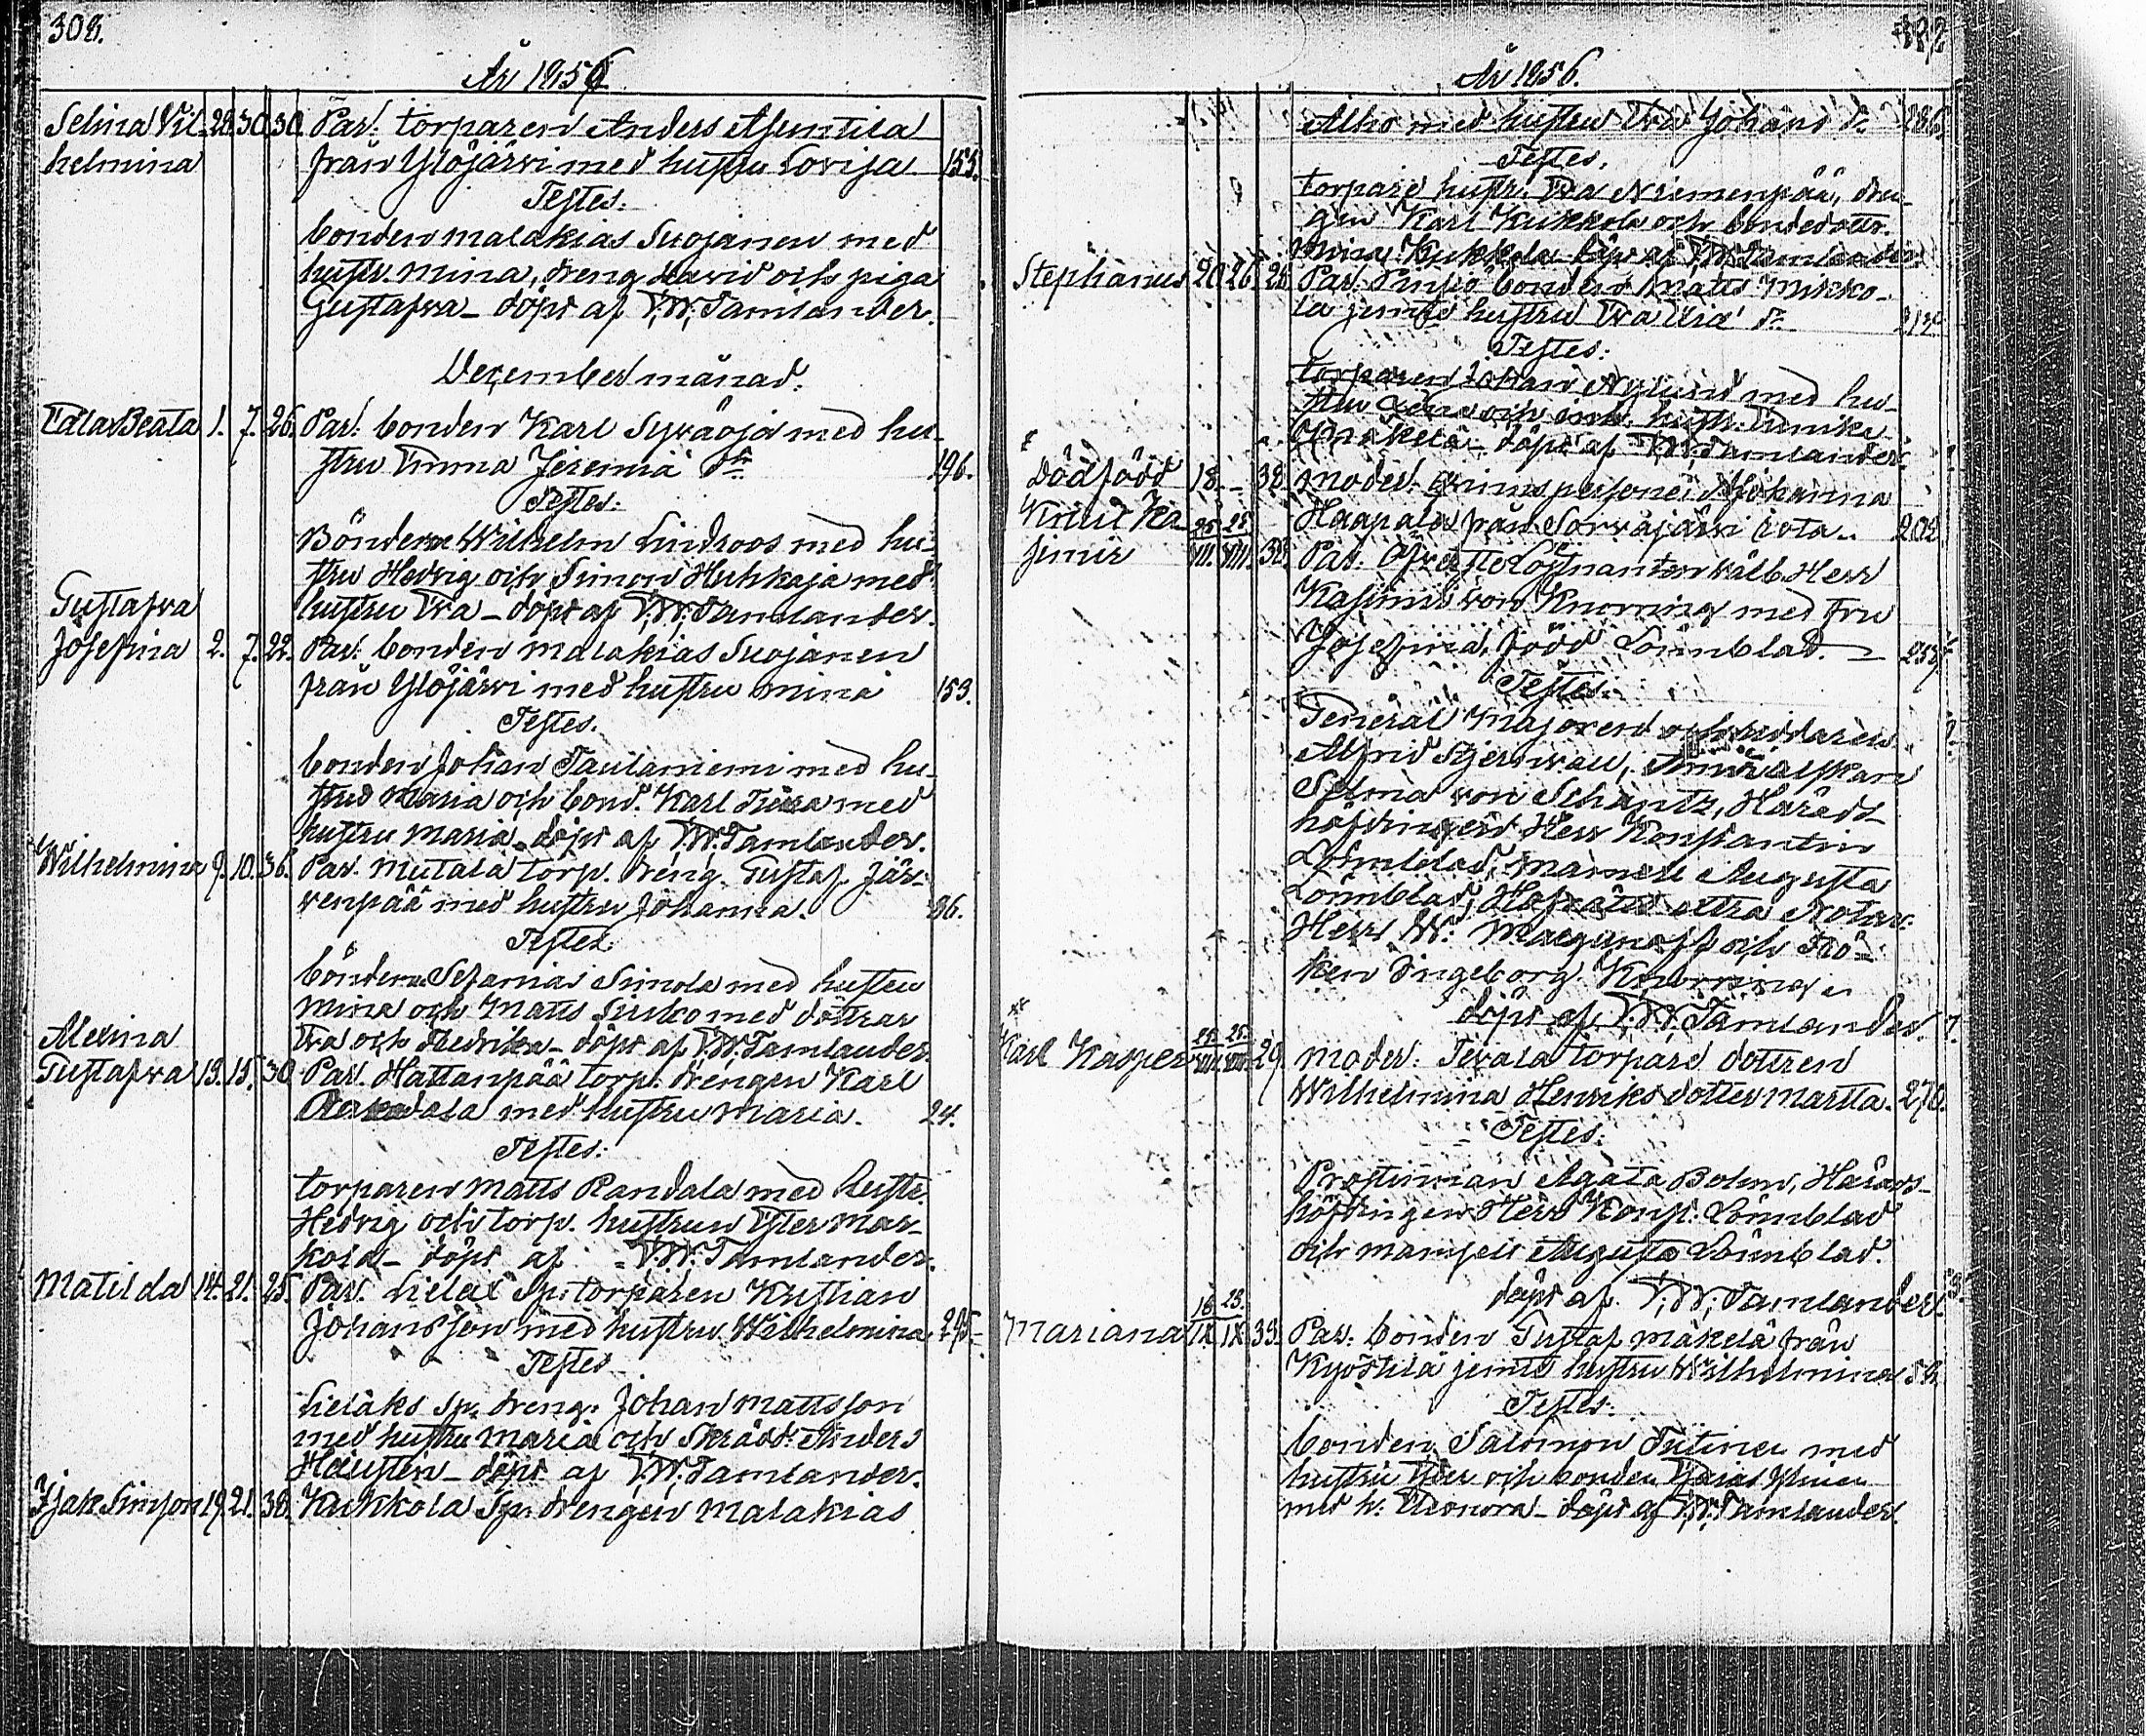 308.
År 1856
Selma Vil- 28. 30. 30. Par: torparen Anders Anttila
helmina från Ylöjärvi med hustru Lovisa 155.
Testes:
bonden Malakias Suojanen med
hustr. Mina, dreng David och piga
Gustafva – döpt af T. W. Tamlander.
December månad.
Edla Beata 1. 7. 26. Par: bonden Karl Syväoja med hu-
stru Emma Jeremiä dr. 196.
Testes:
Bönderne Wilhelm Lindroos med hu-
stru Hedvig och Simon Huhkaja med
hustru Eva – döpt af T. W. Tamlander.
Gustafva
Josefina 2. 7. 22. Par: bonden Malakias Suojanen
från Ylöjärvi med hustru Mina 153.
Testes.
bonden Johan Taulaniemi med hu-
stru Maria och bond. Karl med
hustru Maria – döpt af T. W. Tamlander.
Wilhelmina 9. 10. 36. Par. Mutala torp. dreng. Gustaf Jär-
venpää med hustru Johanna. 86.
Testes:
bönderne Sefanias Simola med hustru
Mina och Matts med döttrar
Eva och Fredrika – döpt af T. W. Tamlander.
Alexina
Gustafva 13. 15. 30. Par. Hattanpää torp. drengen Karl
med hustru Maria. 24.
Testes:
torparen Matts Randala med hustr.
Hedvig och torp. hustrun Ester Mar-
kola – döpt af T. W. Tamlander.
Matilda 14. 21. 25. Par. Lielax Sp. torparen Kristian
Johansson med hustru Wilhelmina. 295
Testes
Lielaks Sp. dreng. Johan Mattsson
med hustru Maria och Skrädd. Anders
– döpt af T. W. Tamlander.
Isak Simson 19. 21. 38. Kukkola Sp. drengen Malakias
År 1856.
Alho med hustru Eva Johans dr. 286.
Testes.
torpare hustr. Eva Niemenpää, dren-
gen Karl Kukkola och bondedottr.
Mina Kukkola – döpt af T. W. Tamlander.
Stephanus 20. 26. 28. Par. bonden Matts Mikko-
la jemte hustru Eva dr.
Testes:
torparen Johan Nylund med hu-
stru Lena och hustr.
Mäkelä – döpt af T. W. Tamlander.
Dödfödd 18. – 32. Moder: qvinnspersonen Johanna
Haapala från Sorvajärvi rota. 202.
Knut Ka-
simir 25/VII. 28/VIII. 32. Par: Öfverste Löjtnanten välb. Herr
Kasimir von Knorring med Fru
Josefina, född Lönnblad.
Testes:
General Majoren och riddaren
Alfrid Stjernvall, Amiralskan
Selma von Schantz, Härads-
höfdingen Herr Konstantin
Lönnblad, Mamsell Augusta
Lönnblad, Hofrätts extra Notar.
Herr W. och Frö-
ken Ingeborg Knorring
döpt af T. W. Tamlander.
Karl Kasper 29. Moder: Tevala torpare dottren
Wilhelmina Henriks dotter Martta. 276.
Testes:
Prostinnan Agata Bohm, Härads-
höfdingen Herr Konst. Lönnblad
och mamsell Augusta Lönnblad.
döpt af T. W. Tamlander.
Mariana 16/IX. 23/IX. 33. Par. bonden Gustaf Mäkelä från
Kyöstilä jemte hustru Wilhelmina
Testes:
bonden Salomon med
hustru Ester och bonden Esaias
med h. Eleonora – döpt af T. W. Tamlander.